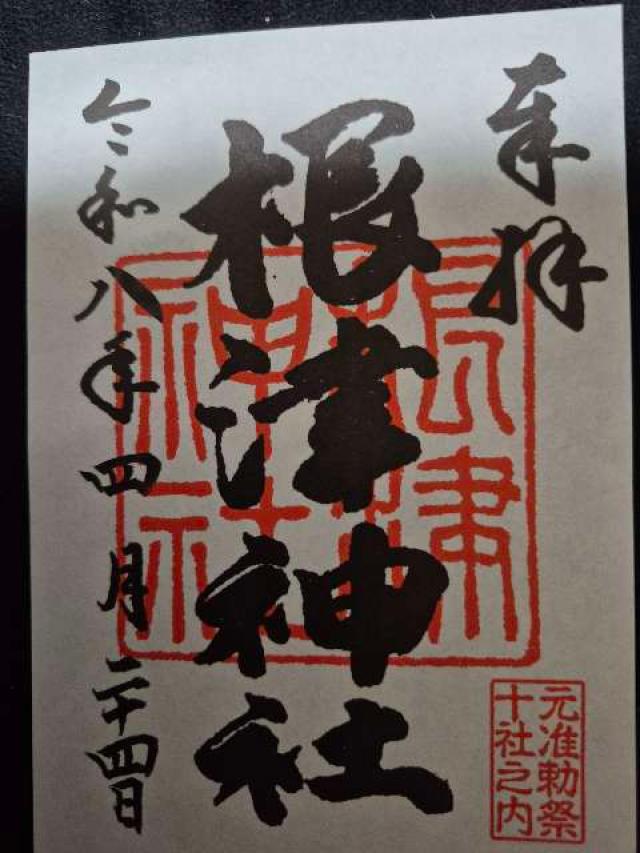 奉拝
根津神社
根津神社
令和八年四月二十四日
元准勅祭
十社之内